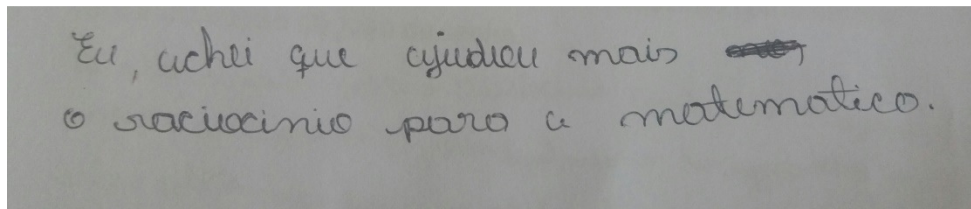 Eu, achei que ajudou mais
o raciocinio para a matematica.